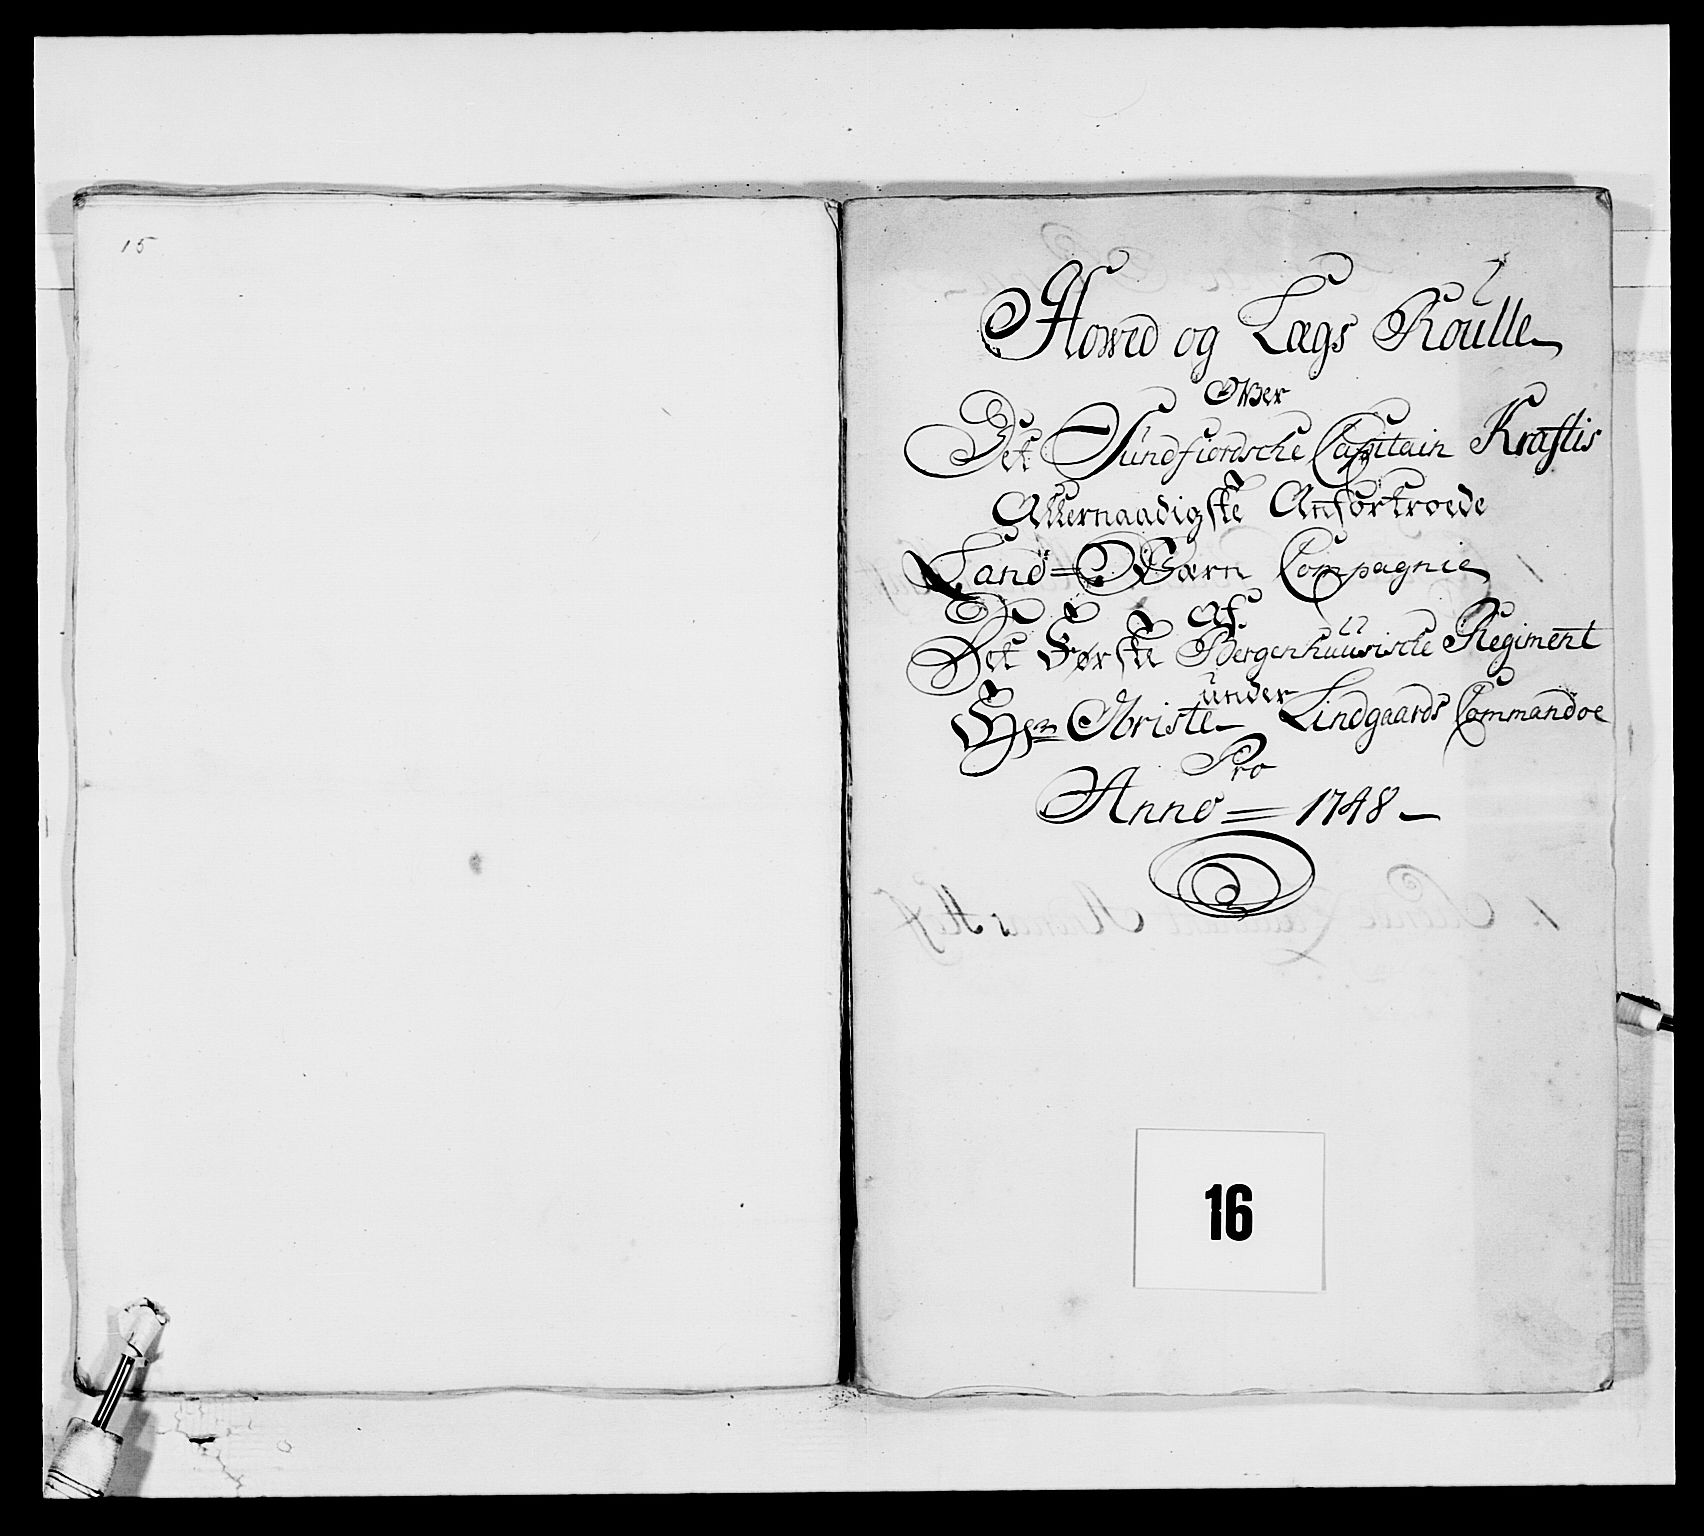 15
Howed og Lægs Roulle
Over
Det Sundfiordsche Capitain Kraftis
Allernaadigste Anfortroede
Land=Værn Compagnie
Af
Det Første Bergenhuusische Regiment
under
Hrn Obriste Lindgaards Commandoe
Pro
Anno = 1748
16